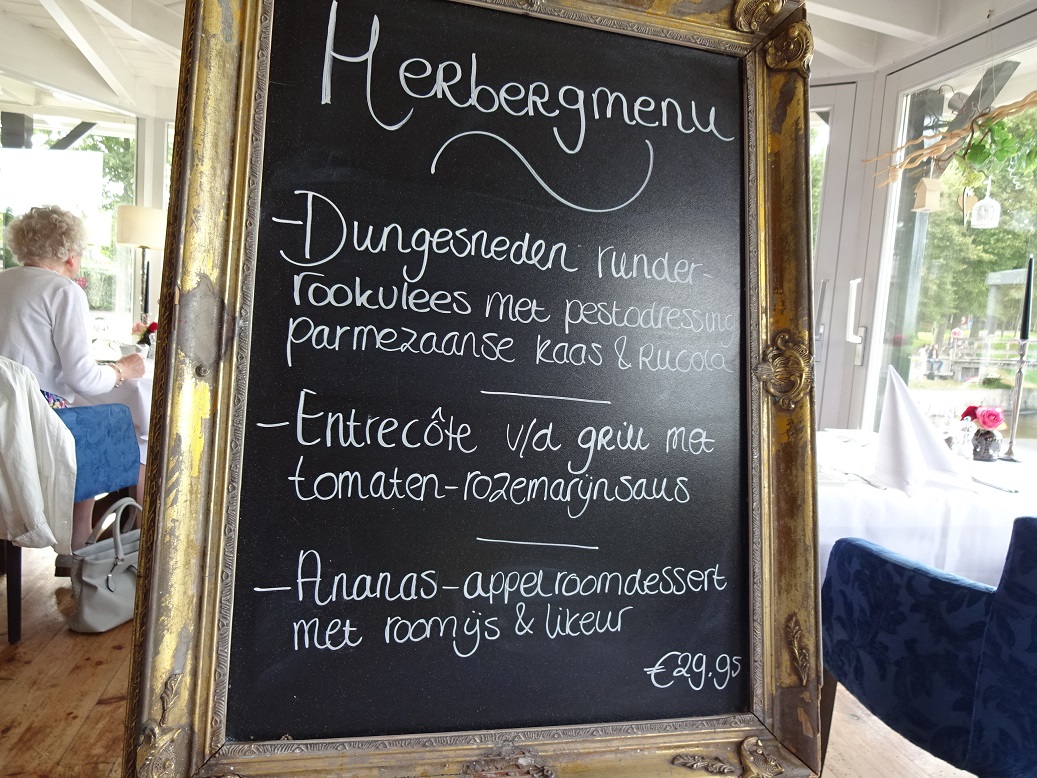 Herbergmenu
- Dungesneden runder-
rookvlees met pestodressing
parmezaanse kaas & Rucola
- Entrecôte v/d grill met
tomaten-rozemarijnsaus
- Ananas-appelroomdessert
met roomijs & likeur
€29.95